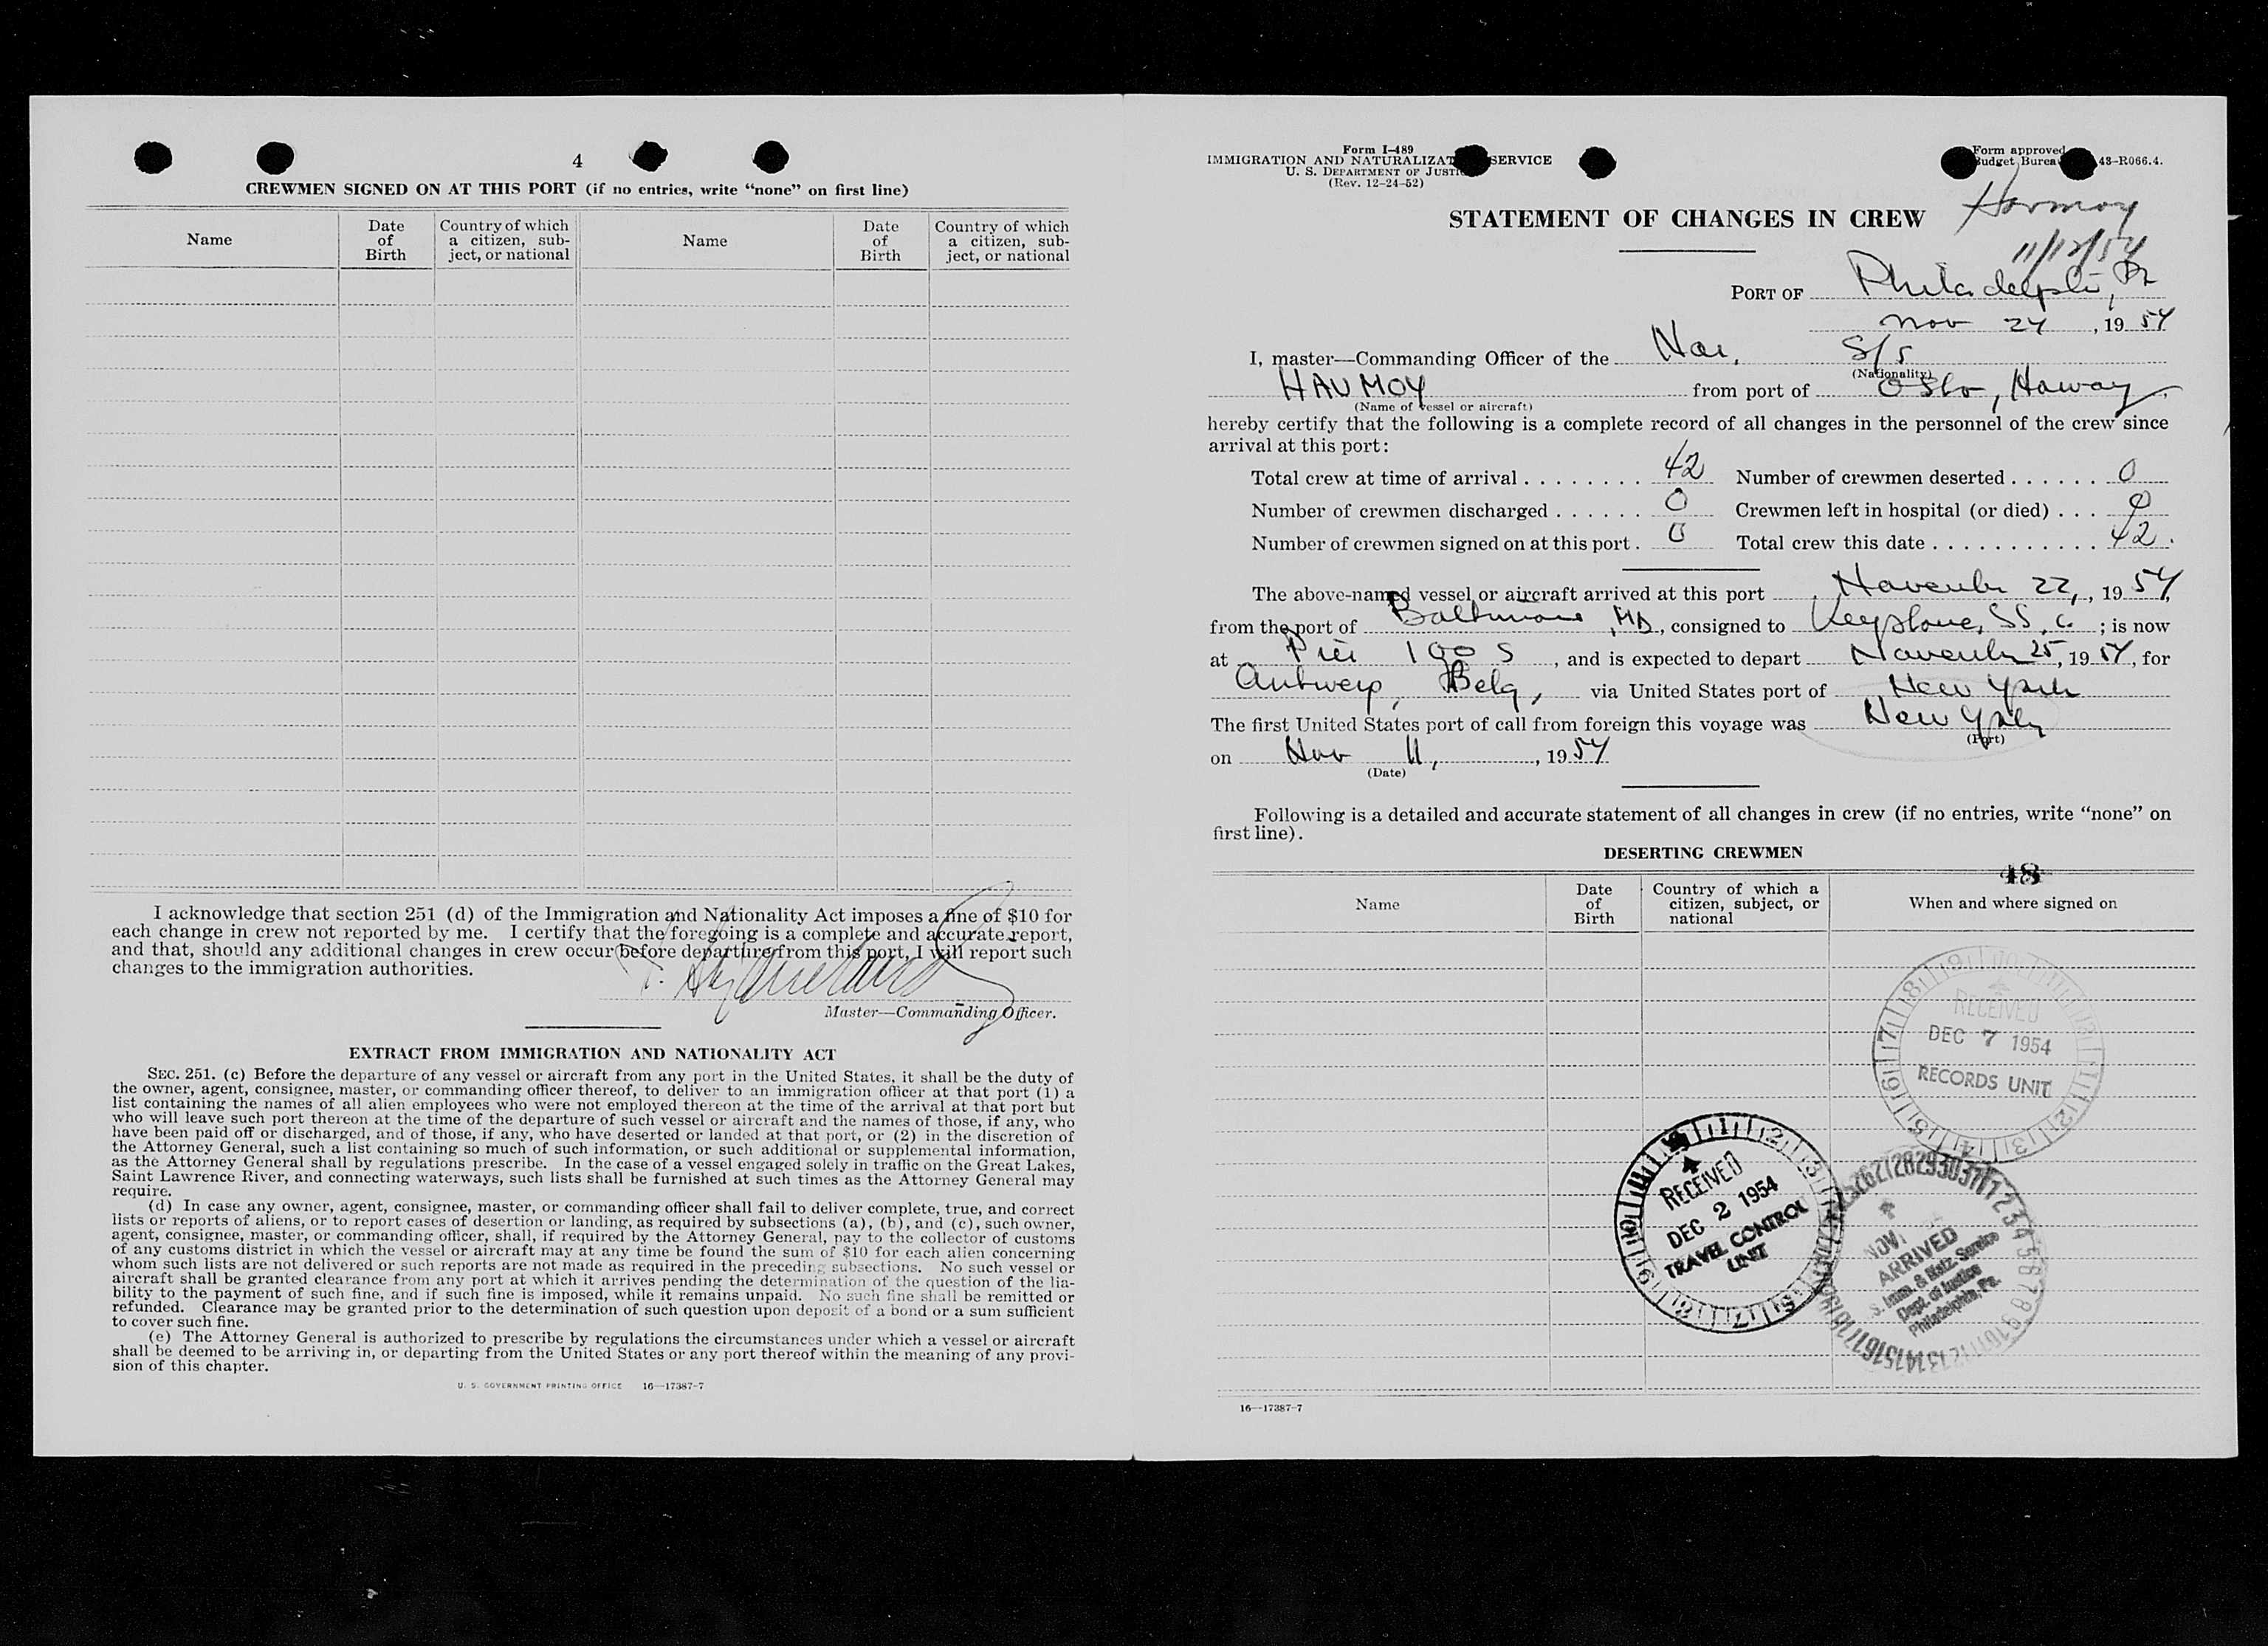 4
CREWMEN SIGNED ON AT THIS PORT (if no entries, write “none” on first line)
Name
Date of Birth
Country of which a citizen, sub-ject, or national
Name
Date of Birth
Country of which a citizen, sub-ject, or national
I acknowledge that section 251 (d) of the Immigration and Nationality Act imposes a fine of $10 for
each change in crew not reported by me. I certify that the foregoing is a complete and accurate report,
and that, should any additional changes in crew occur before departure from this port, I will report such
changes to the immigration authorities.
Master—Commanding Officer.
EXTRACT FROM IMMIGRATION AND NATIONALITY ACT
SEC. 251. (c) Before the departure of any vessel or aircraft from any port in the United States, it shall be the duty of
the owner, agent, consignee, master, or commanding officer thereof, to deliver to an immigration officer at that port (1) a
list containing the names of all alien employees who were not employed thereon at the time of the arrival at that port but
who will leave such port thereon at the time of the departure of such vessel or aircraft and the names of those, if any, who
have been paid off or discharged, and of those, if any, who have deserted or landed at that port, or (2) in the discretion of
the Attorney General, such a list containing so much of such information, or such additional or supplemental information,
as the Attorney General shall by regulations prescribe. In the case of a vessel engaged solely in traffic on the Great Lakes,
Saint Lawrence River, and connecting waterways, such lists shall be furnished at such times as the Attorney General may
require.
(d) In case any owner, agent, consignee, master, or commanding officer shall fail to deliver complete, true, and correct
lists or reports of aliens, or to report cases of desertion or landing, as required by subsections (a), (b), and (c), such owner,
agent, consignee, master, or commanding officer, shall, if required by the Attorney General, pay to the collector of customs
of any customs district in which the vessel or aircraft may at any time be found the sum of $10 for each alien concerning
whom such lists are not delivered or such reports are not made as required in the preceding subsections. No such vessel or
aircraft shall be granted clearance from any port at which it arrives pending the determination of the question of the lia-
bility to the payment of such fine, and if such fine is imposed, while it remains unpaid. No such fine shall be remitted or
refunded. Clearance may be granted prior to the determination of such question upon deposit of a bond or a sum sufficient
to cover such fine.
(e) The Attorney General is authorized to prescribe by regulations the circumstances under which a vessel or aircraft
shall be deemed to be arriving in, or departing from the United States or any port thereof within the meaning of any provi-
sion of this chapter.
U. S. GOVERNMENT PRINTING OFFICE 16—17387-7
Form I-489
IMMIGRATION AND NATURALIZAT SERVICE
U. S. DEPARTMENT OF JUSTI
(Rev. 12-24-52)
Form approved
Budget Burea 43-R066.4.
Havmoy
11/12/54
STATEMENT OF CHANGES IN CREW
PORT OF Philadelphi, Pa
Nov 24, 1954
I, master—Commanding Officer of the Nor. S/S
(Nationality)
HAVMOY from port of Oslo, Norway.
(Name of vessel or aircraft)
hereby certify that the following is a complete record of all changes in the personnel of the crew since
arrival at this port:
Total crew at time of arrival . . . . . . . . 42 Number of crewmen deserted . . . . . . 0
Number of crewmen discharged . . . . . . 0 Crewmen left in hospital (or died) . . . 0
Number of crewmen signed on at this port . 0 Total crew this date . . . . . . . . . . . 42.
The above-named vessel or aircraft arrived at this port November 22, 1954,
from the port of Baltimore, MD, consigned to Keystone, SS. Co ; is now
at Pier 100 S, and is expected to depart November 25, 1954, for
Antwerp, Belg, via United States port of New York
The first United States port of call from foreign this voyage was New York
(Port)
on Nov 11, , 1954
(Date)
Following is a detailed and accurate statement of all changes in crew (if no entries, write “none” on
first line).
DESERTING CREWMEN
48
Name
Date of Birth
Country of which a citizen, subject, or national
When and where signed on
RECEIVED
DEC 7 1954
RECORDS UNIT
RECEIVED
DEC 2 1954
TRAVEL CONTROL
UNIT
NOV
ARRIVED
S. Imm. & Natz. Service
Dept. of Justice
Philadelphia, Pa.
16—17387-7